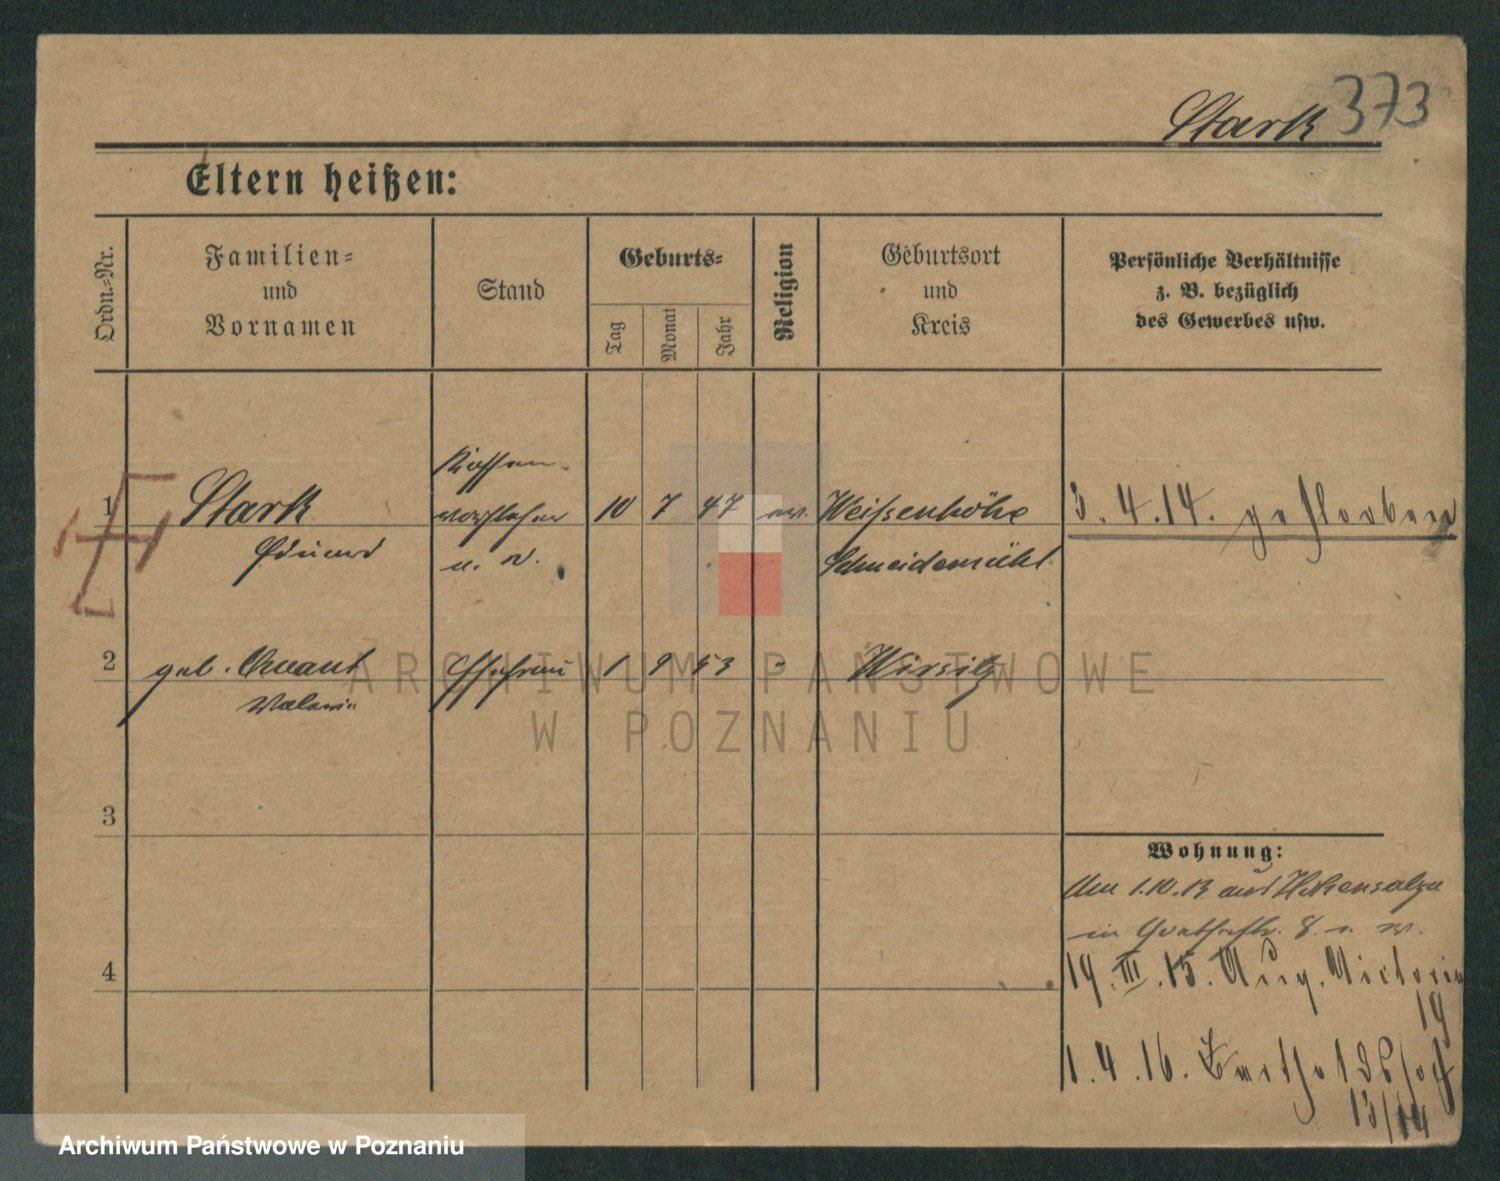 Stark 373
Eltern heißen:
Ordn.-Nr.
Familien-
und
Vornamen
Stand
Geburts-
Tag
Monat
Jahr
Religion
Geburtsort
und
Kreis
Persönliche Verhältnisse
z. B. bezüglich
des Gewerbes usw.
1 Stark 10 7 47 ev. Weißenhöhe 3.4.14. gestorben
Eduard
Kassen-
vorsteher
a. D.
Schneidemühl
2 geb. Ehefrau 1 9 53 " Wirsitz
Valerie
3
Wohnung:
Am 1.10.13 aus Hohensalza
in Goethestr. 8
4
19.III.15. Aug. Victoria
19
1.4.16.
13/14
ARCHIWUM PAŃSTWOWE
W POZNANIU
Archiwum Państwowe w Poznaniu